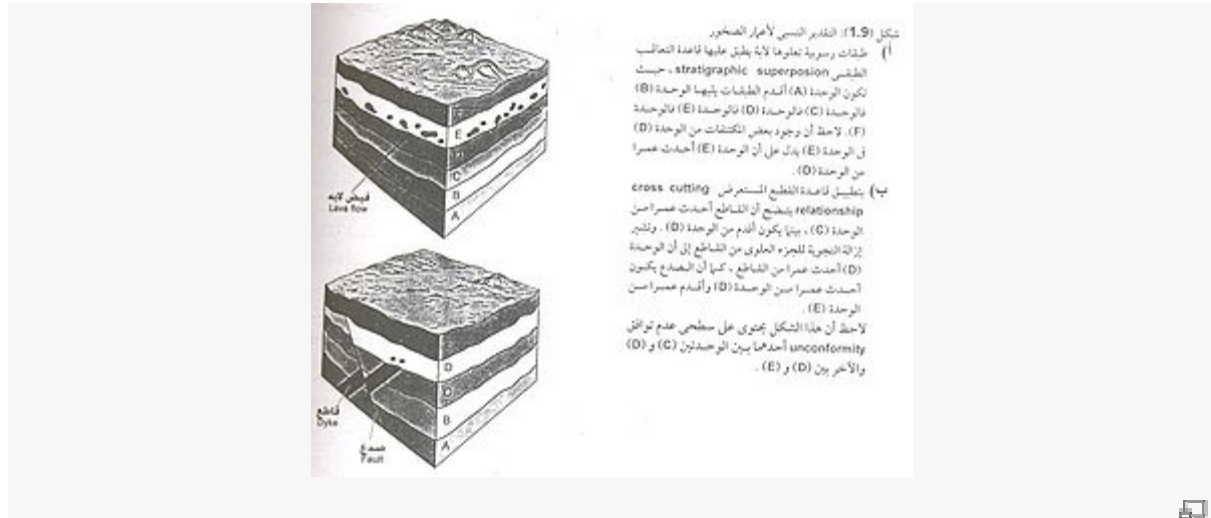 شكل (1.9): التقدير النسبي لأعمار الصخور
أ) طبقات رسوبية تعلوها لابة يطبق عليها قاعدة التعاقب
الطبقي stratigraphic superposion، حيث
تكون الوحدة (A) أقدم الطبقات يليها الوحدة (B)
فالوحدة (C) فالوحدة (D) فالوحدة (E) فالوحدة
(F). لاحظ أن وجود بعض المكتنفات من الوحدة (D)
في الوحدة (E) يدل على أن الوحدة (E) أحدث عمرا
من الوحدة (D).
ب) بتطبيق قاعدة القطع المستعرض cross cutting
relationship يتضح أن القاطع أحدث عمرا من
الوحدة (C)، بينما يكون أقدم من الوحدة (D). وتشير
إزالة التجوية للجزء العلوي من القاطع إلى أن الوحدة
(D) أحدث عمرا من القاطع، كما أن الصدع يكون
أحدث عمرا من الوحدة (D) وأقدم عمرا من
الوحدة (E).
لاحظ أن هذا الشكل يحتوى على سطحى عدم توافق
unconformity أحدهما بين الوحدتين (C) و (D)
والآخر بين (D) و (E).
E
D
C
B
A
فيض لابه
Lava flow
D
C
B
A
قاطع
Dyke
صدع
Fault